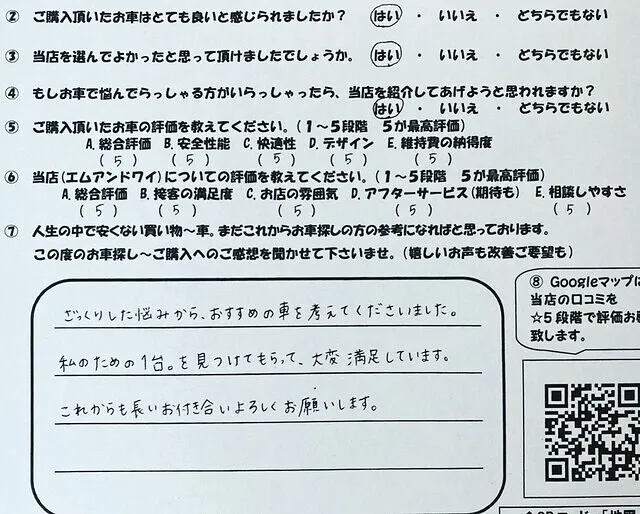 ② ご購入頂いたお車はとても良いと感じられましたか？ はい ・ いいえ ・ どちらでもない
③ 当店を選んでよかったと思って頂けましたでしょうか。 はい ・ いいえ ・ どちらでもない
④ もしお車で悩んでらっしゃる方がいらっしゃったら、当店を紹介してあげようと思われますか？
はい ・ いいえ ・ どちらでもない
⑤ ご購入頂いたお車の評価を教えてください。（１～５段階　５が最高評価）
A. 総合評価 B. 安全性能 C. 快適性 D. デザイン E. 維持費の納得度
( 5 ) ( 5 ) ( 5 ) ( 5 ) ( 5 )
⑥ 当店（エムアンドワイ）についての評価を教えてください。（１～５段階　５が最高評価）
A. 総合評価 B. 接客の満足度 C. お店の雰囲気 D. アフターサービス（期待も） E. 相談しやすさ
( 5 ) ( 5 ) ( 5 ) ( 5 ) ( 5 )
⑦ 人生の中で安くない買い物～車。まだこれからお車探しの方の参考になればと思っております。
この度のお車探し～ご購入へのご感想を聞かせて下さいませ。（嬉しいお声も改善ご要望も）
ざっくりした悩みから、おすすめの車を考えてくださいました。
私のための1台。を見つけてもらって、大変満足しています。
これからも長いお付き合いよろしくお願いします。
⑧ Googleマップに
当店の口コミを
☆５段階で評価お
致します。